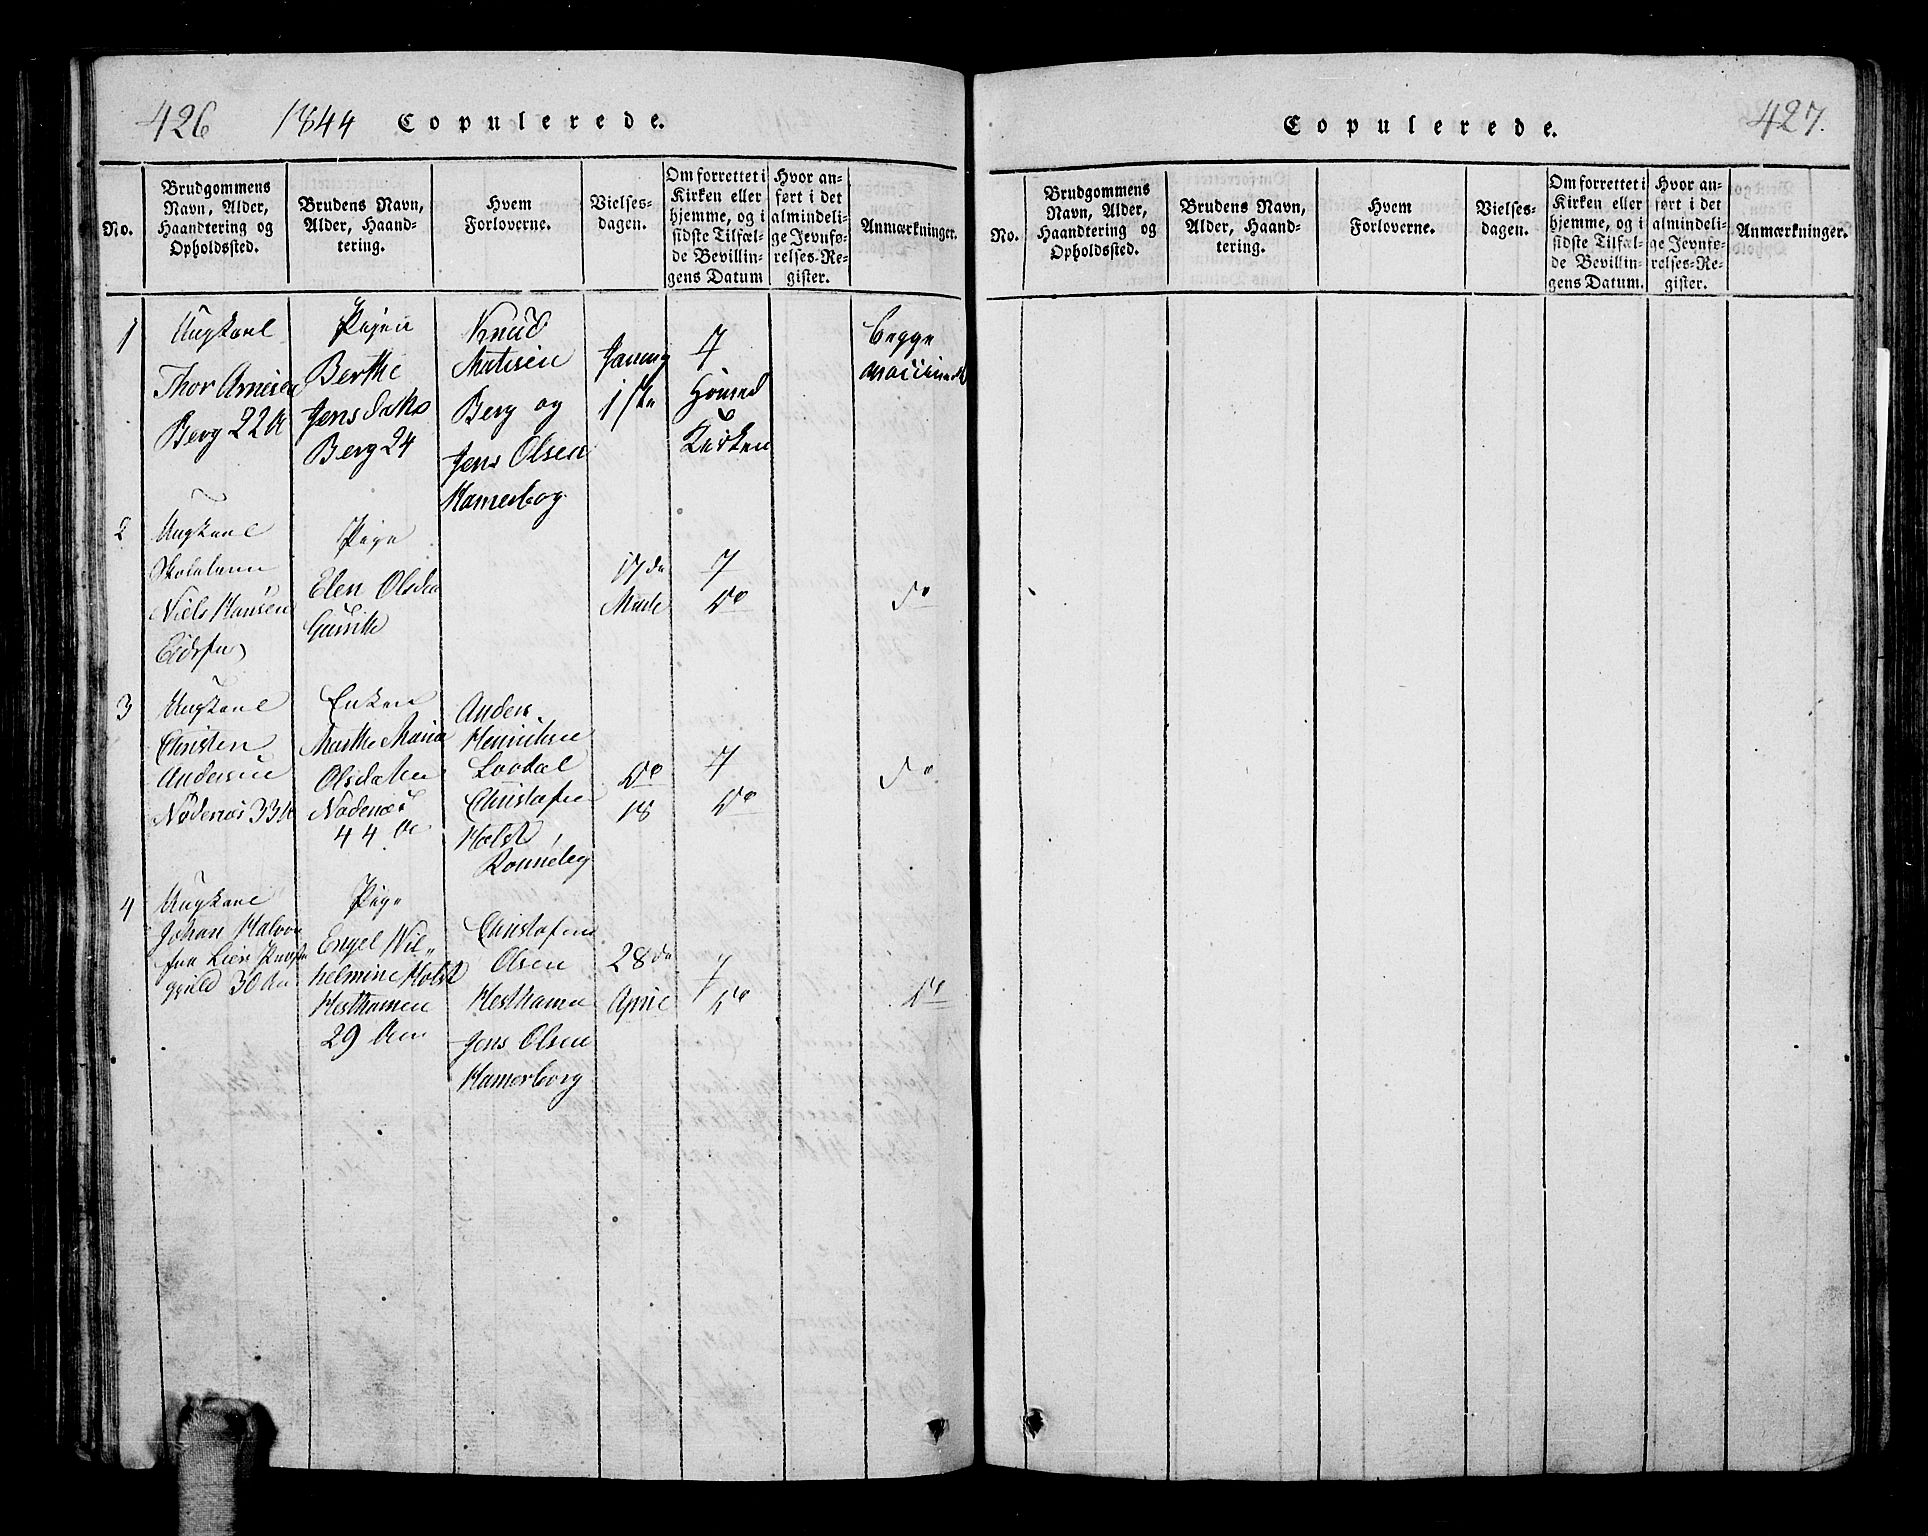 426 1844 Copulerede.
No.
Brudgommens
Navn, Alder,
Haandtering og
Opholdssted.
Brudens Navn,
Alder, Haand-
tering.
Hvem
Forloverne.
Vielses-
dagen.
Om forrettet i
Kirken eller
hjemme, og i
sidste Tilfæl-
de Bevillin-
gens Datum
Hvor an-
ført i det
almindeli-
ge Jevnfø-
relses-Re-
gister.
Anmærkninger.
1
Ungkarl
Thor Arnesen
Berg 22
Pigen
Berthe
Jensdatr
Berg 24
Knud
Matisen
Berg og
Jens Olsen
Hamerborg
January
1ste
I
Hönsed
Kirken
Begge
2
Ungkarl
Niels Hansen
Eidsfos
Pige
Elen Olsdn
17de
Marts
I
Do
Do
3
Ungkarl
Christen
Andersen
33
Enken
Marthe Maria
Olsdatter
44 Ar
Anders
Henriksen
Lovdal
Christofer
Holst
Do
18
I
Do
Do
4
Ungkarl
Johan Halvor
fra Lier Præste
gjeld 30 Ar
Pige
Engel Wil-
helmine Holst
Hesthamer
29 Aar
Christofer
Olsen
Hesthamer
Jens Olsen
Hamerborg
28de
April
I
Do
Do
Copulerede. 427.
No.
Brudgommens
Navn, Alder,
Haandtering og
Opholdssted.
Brudens Navn,
Alder, Haand-
tering.
Hvem
Forloverne.
Vielses-
dagen.
Om forrettet i
Kirken eller
hjemme, og i
sidste Tilfæl-
de Bevillin-
gens Datum.
Hvor an-
ført i det
almindeli-
ge Jevnfø-
relses-Re-
gister.
Anmærkninger.